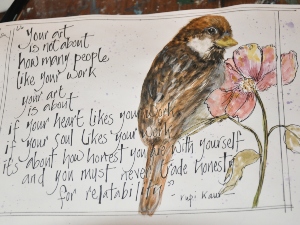 "Your art
is not about
how many people
like your work
your art
is about
if your heart likes your work
if your soul likes your work
it's about how honest you are with yourself
and you must never trade honesty
for relatability"
- rupi kaur -